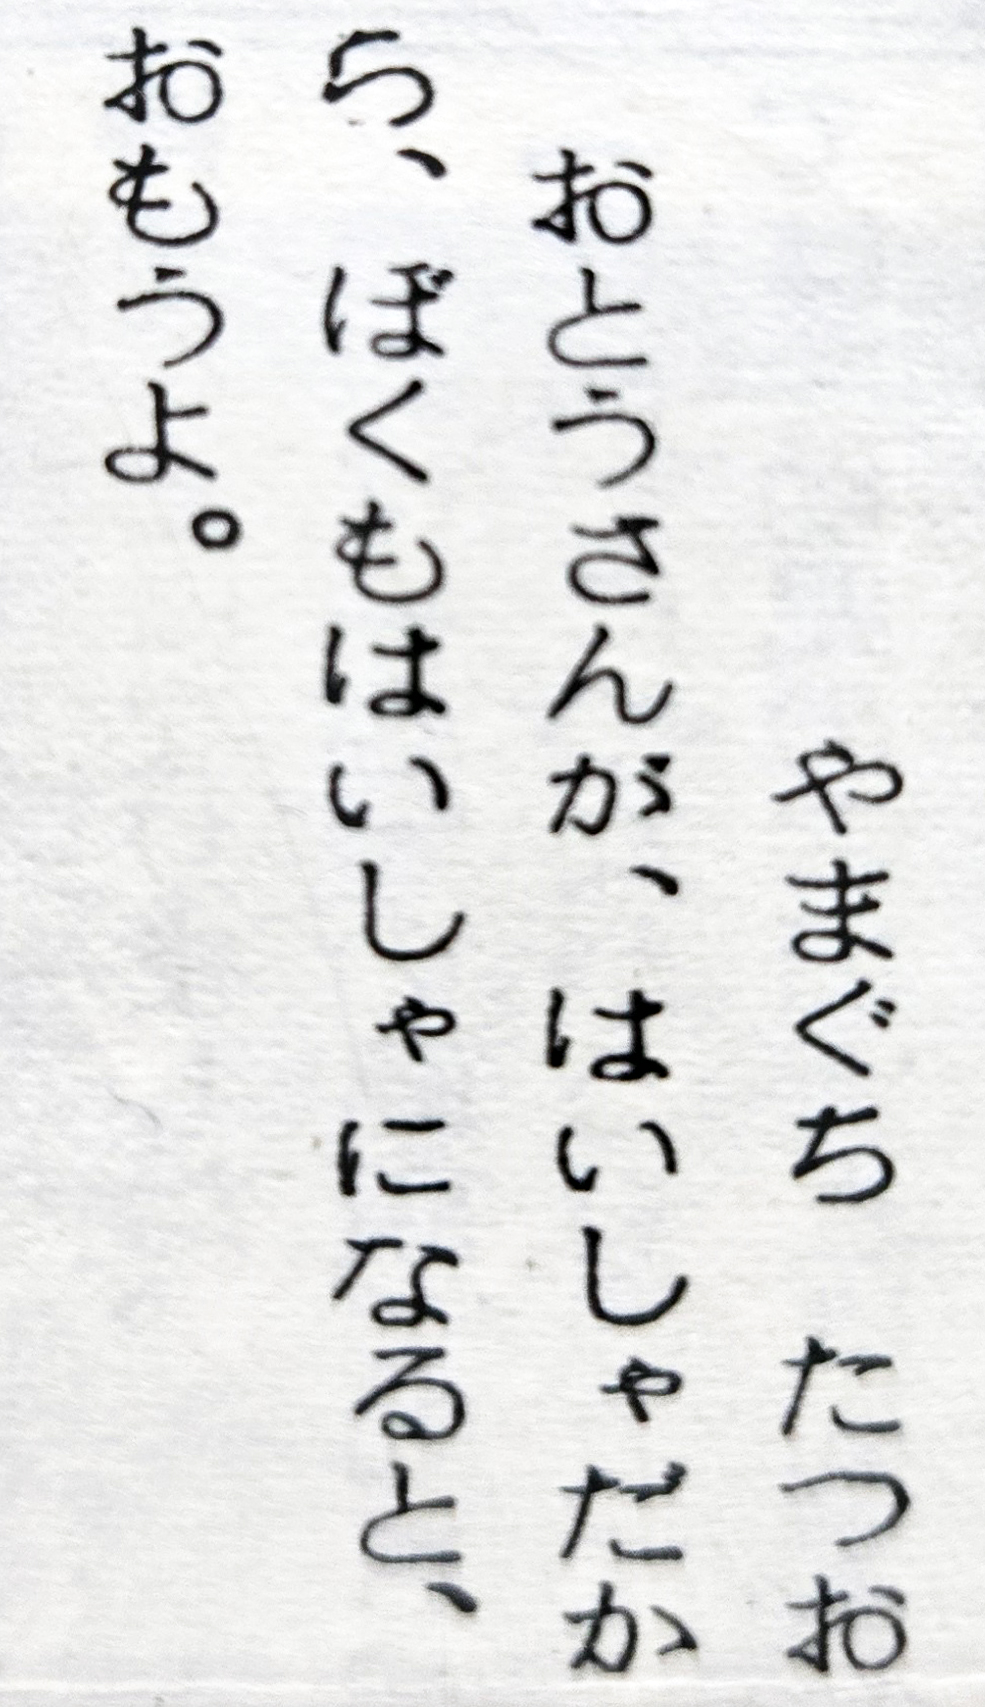 やまぐち　たつお
　おとうさんが、はいしゃだか
ら、ぼくもはいしゃになると、
おもうよ。